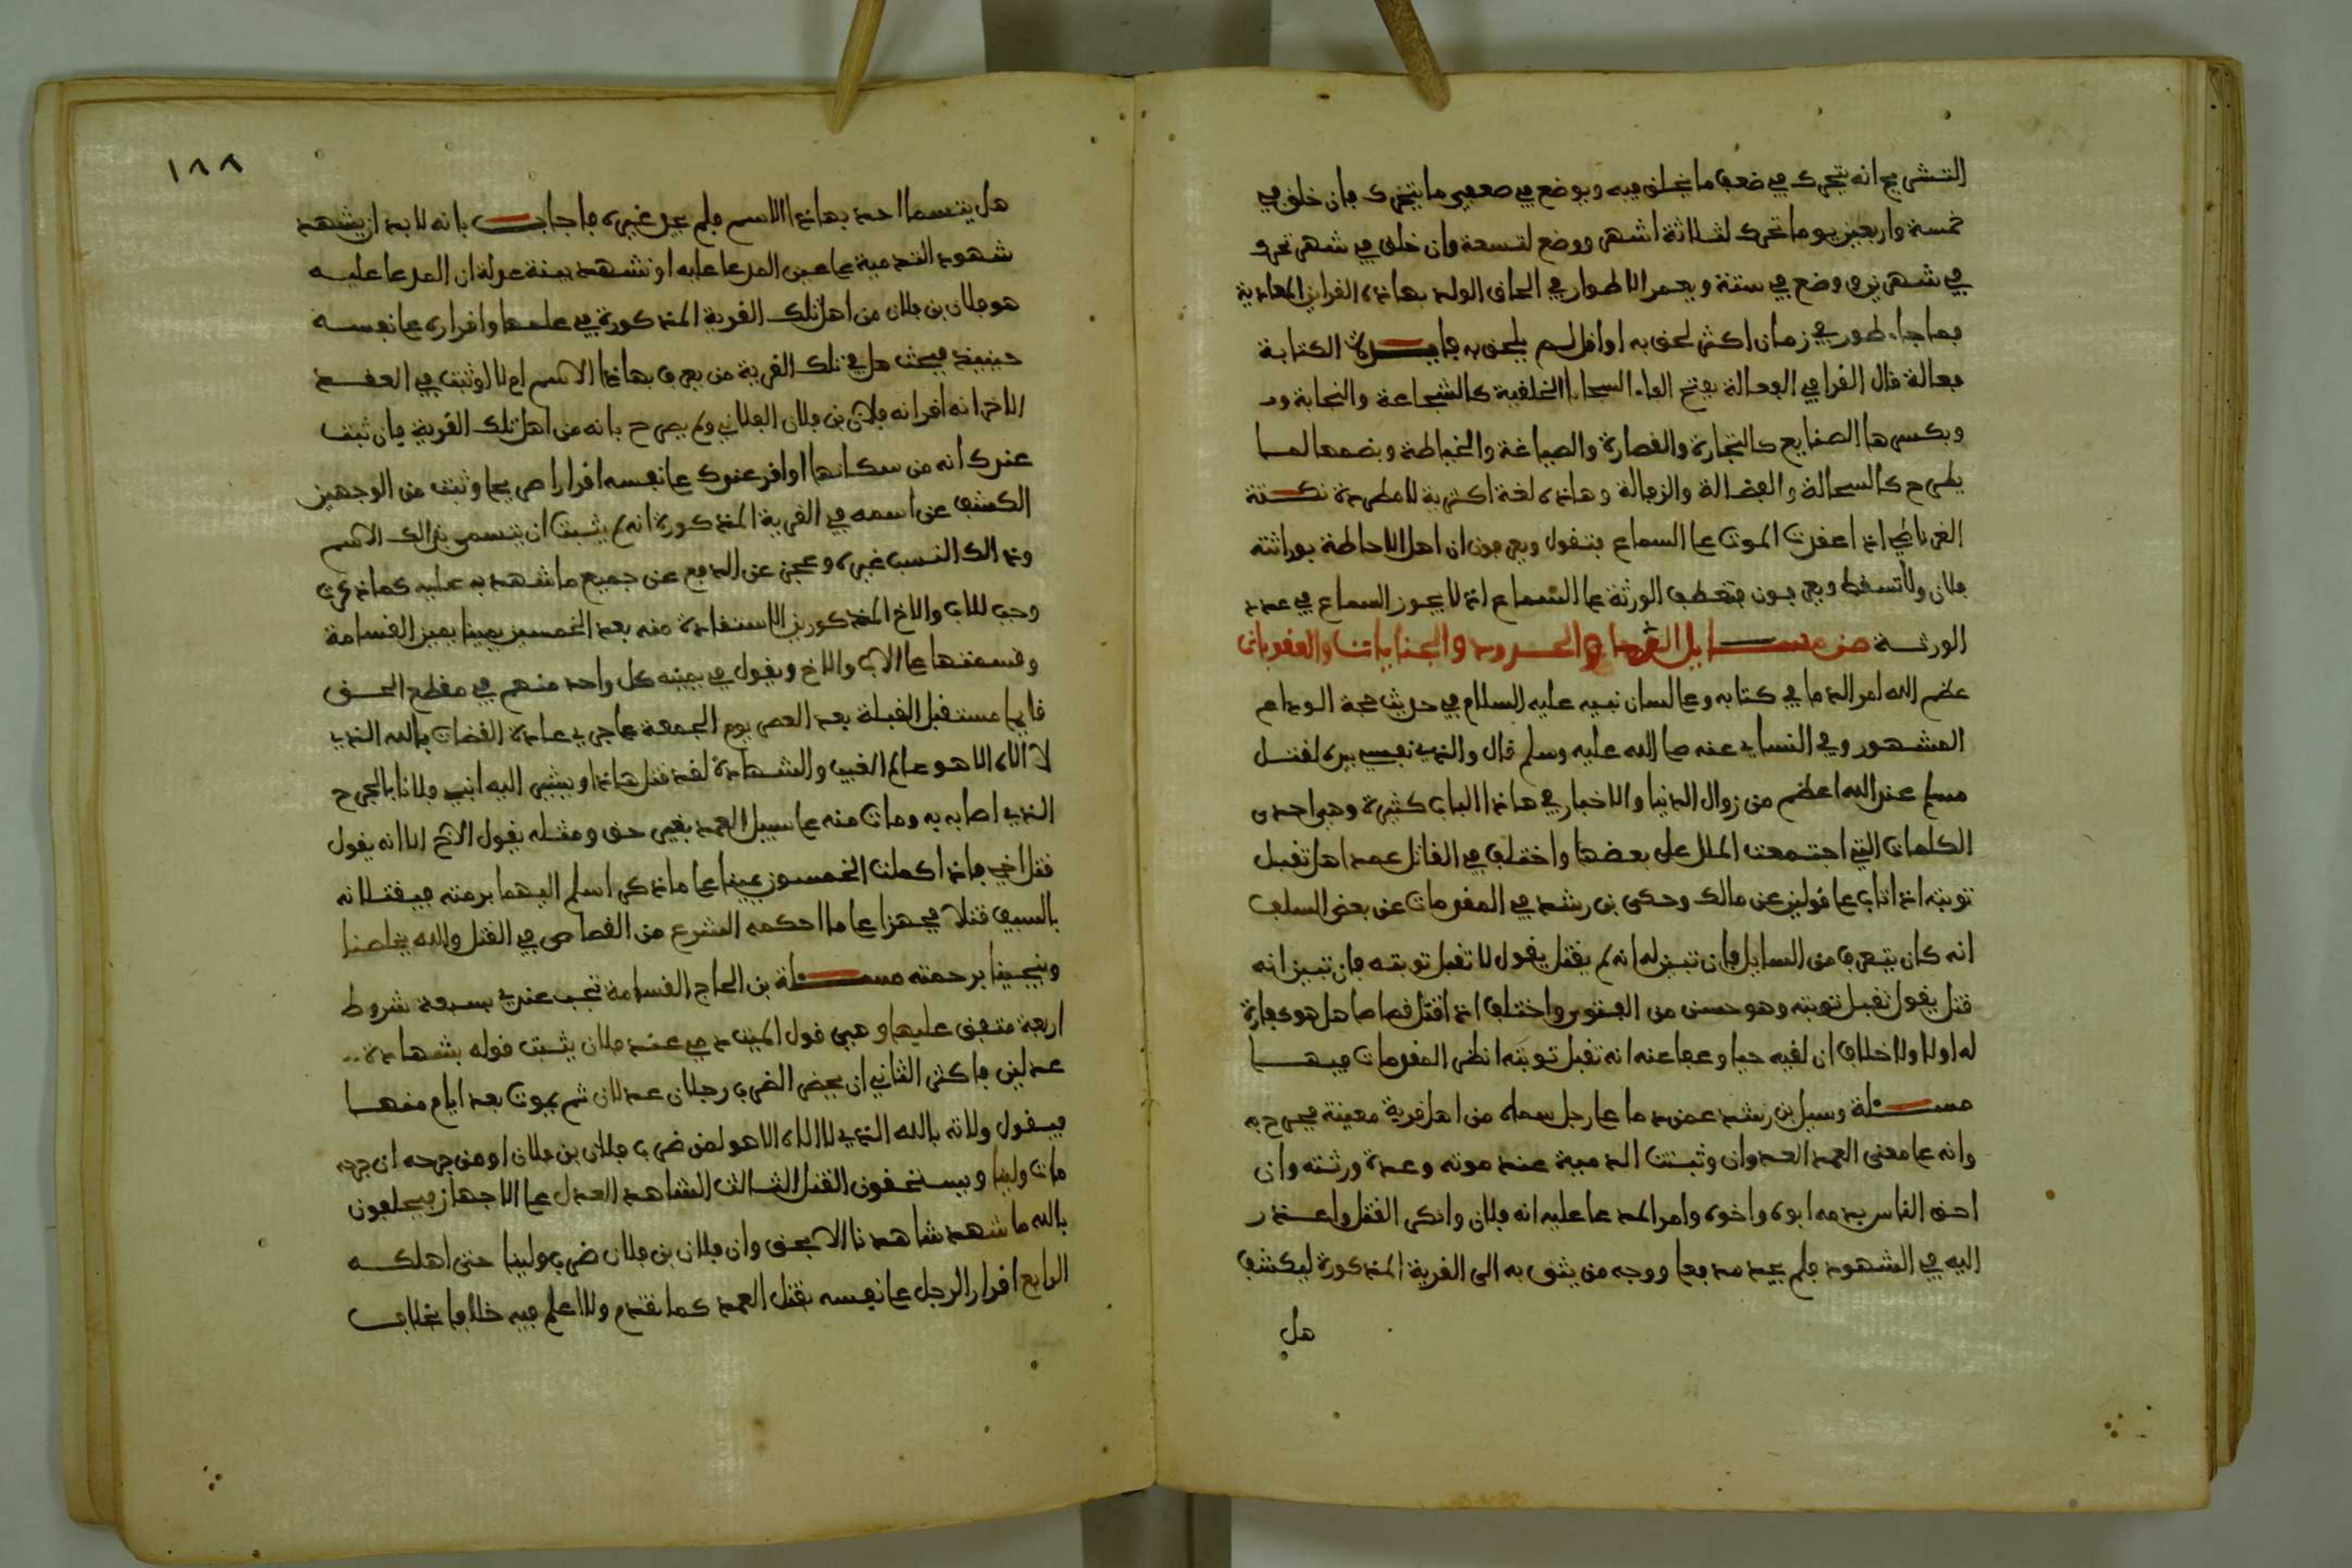 التشريح انه يتحرك في ضعف ما يتخلق فيه ويوضع في ضعفي ما يتحرك فان خلق في
خمسة واربعين يوما تحرك لثلاثة اشهر ووضع لتسعة وان خلق في شهر تحرك
في شهرين ووضع في ستة ويعمر الاطوار في الحاق الولد بهاذه القراين العادية
فما جاء طور في زمان اكثر لحق به او اقل لم يلحق به فايدة الكتابة
فعالة قال القرافي الفعالة بفتح الفاء السجايا الخلقية كالشجاعة والنجابة
وبكسرها الصنايع كالتجارة والقصارة والصياغة والخياطة وبضمها لما
يطرح كالسحالة والفضالة والزبالة وهاذه لغة اكثرية لا مطردة نكتة
الغرناطي اذا عقدت الموت على السماع فتقول ويعرفون ان اهل الاحاطة بوراثته
فلان ولا تسقط ويعرفون فتعطف الورثة على السماع اذ لا يجوز السماع في عدد
الورثة من مسايل الجراح والحدود والجنايات والعقوبات
عظم الله امر الدما في كتابه وعلى لسان نبيه عليه السلام في حديث حجة الوداع
المشهور وفي النساي عنه صلى الله عليه وسلم قال والذي نفسي بيده لقتل
مسلم عند الله اعظم من زوال الدنيا والاخبار في هاذا الباب كثيرة وهي احدى
الكلمات التي اجتمعت الملل على بعضها واختلف في القاتل عمدا هل تقبل
توبته اذا تاب على قولين عن مالك وحكى بن رشد في المقدمات عن بعض السلف
انه كان يتعرف من السايل فان تبين له انه لم يقتل يقول لا تقبل توبته فان تبين انه
قتل يقول تقبل توبته وهو حسن من الفتوى واختلف اذا قتل قصاصا هل هو كفارة
له اولا ولا خلاف ان لقيه حيا وعفا عنه انه تقبل توبته انظر المقدمات فيها
مسئلة وسيل بن رشد عمن دما على رجل سماه من اهل قرية معينة فجرح به
وانه على معنى العمد العدوان وثبتت التدمية عند موته وعدة ورثته وان
احق الناس بدمه ابوه واخوه وامر المدعا عليه انه فلان وانكر القتل واعذر
اليه في الشهود فلم يجد مدفعا ووجه من يثق به الى القرية المذكورة ليكشف
هل
١٨٨
هل يتسما احد بهاذا الاسم فلم يجد غيره فاجاب بانه لا بد ان يشهد
شهود التدمية على عين المدعا عليه او تشهد بينة عدلة ان المدعا عليه
هو فلان بن فلان من اهل تلك القرية المذكورة في علمها واقراره على نفسه
حينيذ فيبحث هل في تلك القرية من يعرف بهاذا الاسم ام لا اذ ثبت في العقد
الاخر انه اقر انه فلان بن فلان الفلاني ولم يصرح بانه من اهل تلك القرية فان ثبت
عندك انه من سكانها او اقر عندك على نفسه اقرارا صريحا وثبت من الوجهين
الكشف عن اسمه في القرية المذكورة انه لم يثبت ان يتسمى بذالك الاسم
وذالك النسب غيره وعجز عن الدفع عن جميع ما شهد به عليه كما ذكرت
وجب للاب والاخ المذكورين الاستقادة منه بعد الخمسين يمينا يمين القسامة
وقسمتها على الاب والاخ ويقول في يمينه كل واحد منهم في مقطع الحق
قايما مستقبل القبلة بعد العصر يوم الجمعة على جري عادة القضات بالله الذي
لا اله الا هو عالم الغيب والشهادة لقد قتل هاذا ويشير اليه ابني فلانا بالجرح
الذي اصابه به ومات منه على سبيل العمد بغير حق ومثله يقول الاخ الا انه يقول
قتل اخي فاذا كملت الخمسون يمينا على ما ذكر اسلم اليهما برمته فيقتلانه
بالسيف قتلا مجهزا على ما احكمه الشرع من القصاص في القتل والله يخلصنا
وينجينا برحمته مسئلة بن الحاج القسامة تجب عندي بسبعة شروط
اربعة متفق عليها وهي قول الميت دمي عند فلان يثبت قوله بشهادة
عدلين فاكثر الثاني ان يحضر الضرب رجلان عدلان ثم يموت بعد ايام منها
فيقول ولاته بالله الذي لا الاه الا هو لمن ضرب فلان بن فلان او من جرحه ان جرحه
مات ولينا ويستحقون القتل الثالث الشاهد العدل على الاجهاز فيحلفون
بالله ما شهد شاهدنا الا بحق وان فلان بن فلان ضرب ولينا حتى اهلكه
الرابع اقرار الرجل على نفسه بقتل العمد كما تقدم ولا اعلم فيه خلافا بخلاف